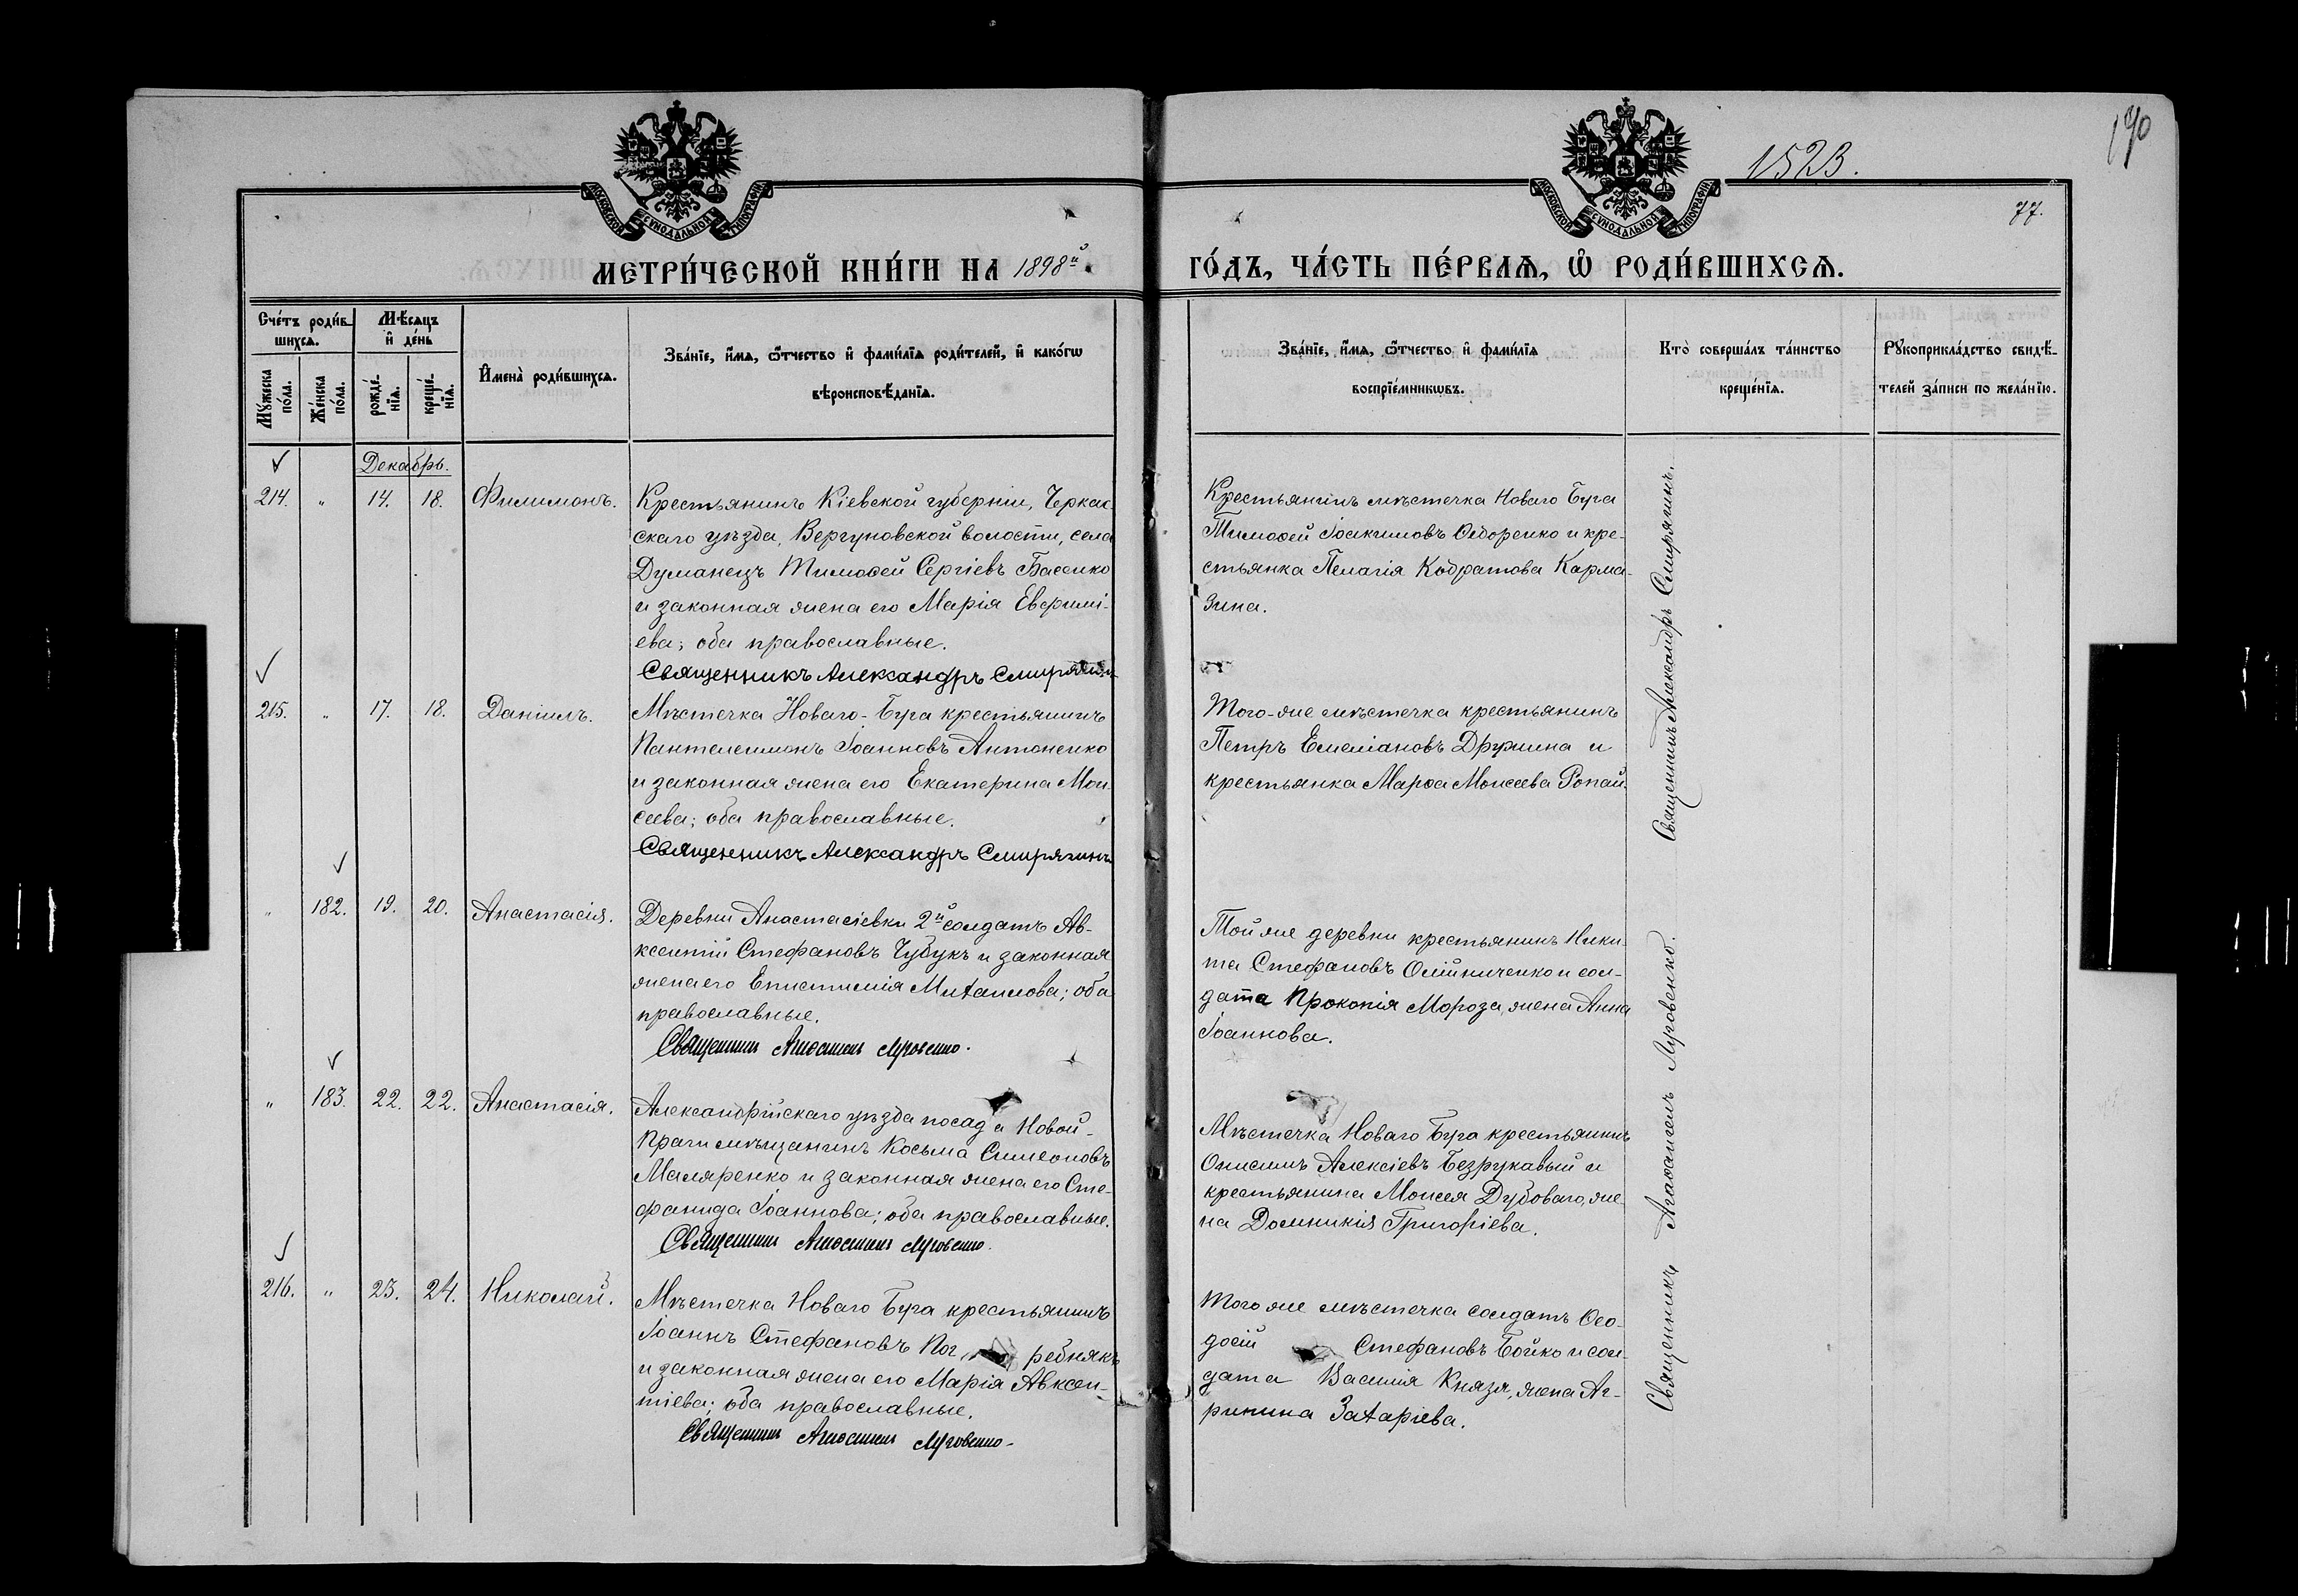 190
1523.
77.
МОСКОВСКОЙ СѴНОДАЛЬНОЙ ТИПОГРАФІИ
МОСКОВСКОЙ СѴНОДАЛЬНОЙ ТИПОГРАФІИ
МЕТРИ́ЧЕСКОЙ КНИ́ГИ НА 1898й
ГО́ДЪ, ЧА́СТЬ ПЕ́РВАѦ, Ѡ҆ РОДИ́ВШИХСѦ.
Сче́тъ роди́в-
шихсѧ.
Мꙋ́жеска по́ла.
Же́нска по́ла.
Мѣ́сѧцъ
и҆ де́нь
рожде́-
нїѧ.
креще́-
нїѧ.
И҆мена̀ роди́вшихсѧ.
Зва́нїе, и҆́мѧ, ѻ҆́тчество и҆ фами́лїѧ роди́телей, и҆ како́гѡ
вѣроисповѣ́данїѧ.
Зва́нїе, и҆́мѧ, ѻ҆́тчество и҆ фами́лїѧ
воспрїе́мникѡвъ.
Кто̀ соверша́лъ та́инство
креще́нїѧ.
Рꙋкоприкла́дство свидѣ́-
телей за́писи по жела́нїю.
Декабрь.
214. " 14. 18. Филимонъ.
Крестьянинъ Кіевской губерніи, Черкас-
скаго уѣзда, Вергуновской волости, села
Думанецъ Тимоѳей Сергіевъ Басенко
и законная жена его Марія Евфимі-
ева; оба православные.
Священникъ Александръ Смирягинъ
Крестьянинъ мѣстечка Новаго Буга
Тимоѳей Іоакимовъ Ѳедоренко и кре-
стьянка Пелагія Кодратова Карма-
зина.
215. " 17. 18. Даніилъ.
Мѣстечка Новаго-Буга крестьянинъ
Пантелеимонъ Іоанновъ Антоненко
и законная жена его Екатерина Мои-
сеева; оба православные.
Священникъ Александръ Смирягинъ
Того-же мѣстечка крестьянинъ
Петръ Емеліановъ Дружина и
крестьянка Марѳа Моисеева Ропай.
Священникъ Александръ Смирягинъ.
" 182. 19. 20. Анастасія.
Деревни Анастасіевки 2й солдатъ Ав-
ксентій Стефановъ Чубукъ и законная
жена его Епистимія Михаилова; оба
православные.
Священникъ Агаѳангелъ Луговенко.
Той же деревни крестьянинъ Ники-
та Стефановъ Олійниченко и сол-
дата Прокопія Мороза, жена Анна
Іоаннова.
" 183. 22. 22. Анастасія.
Александрійскаго уѣзда посада Новой-
Праги мѣщанинъ Косьма Симеоновъ
Маляренко и законная жена его Сте-
фанида Іоаннова; оба православные.
Священникъ Агаѳангелъ Луговенко.
Мѣстечка Новаго Буга крестьянинъ
Онисимъ Алексіевъ Безрукавый и
крестьянина Моисея Дубоваго, же-
на Домникія Григоріева.
216. " 23. 24. Николай.
Мѣстечка Новаго Буга крестьянинъ
Іоаннъ Стефановъ Пог ребнякъ
и законная жена его Марія Авксен-
тіева; оба православные.
Священникъ Агаѳангелъ Луговенко.
Того же мѣстечка солдатъ Ѳео-
досій Стефановъ Бойко и сол-
дата Василія Князя, жена Аг-
рипина Захаріева.
Священникъ Агаѳангелъ Луговенко.